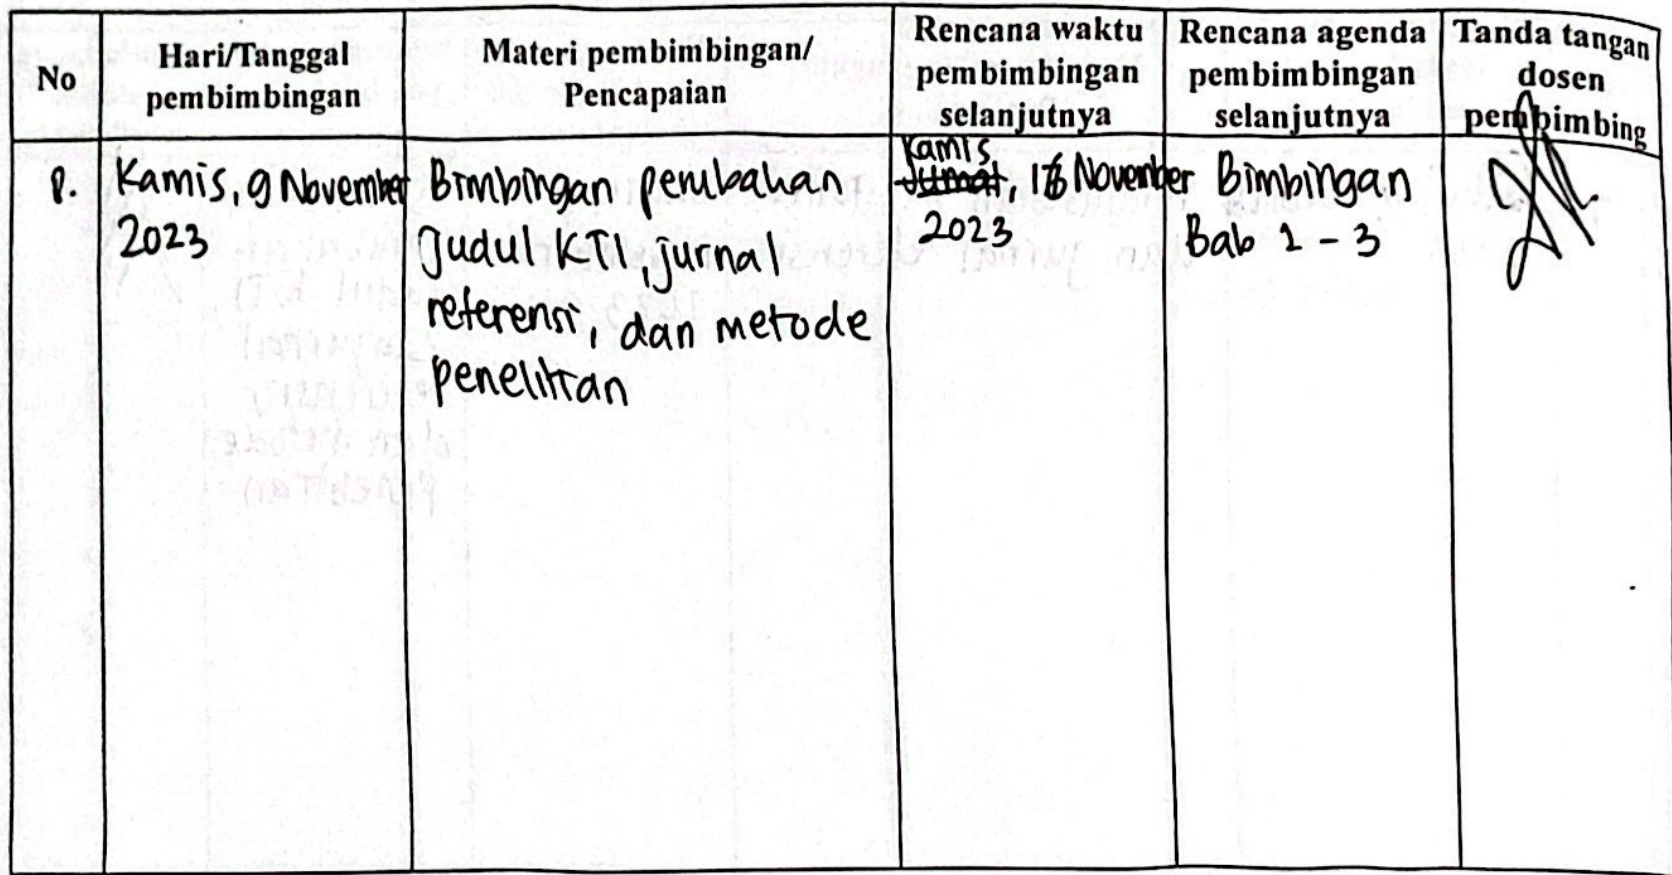 No
Hari/Tanggal
pembimbingan
Materi pembimbingan/
Pencapaian
Rencana waktu
pembimbingan
selanjutnya
Rencana agenda
pembimbingan
selanjutnya
Tanda tangan
dosen
pembimbing
8. Kamis, 9 November
2023
Bimbingan perubahan
Judul KTI, jurnal
referensi, dan metode
penelitian
Kamis
Jumat, 16 November
2023
Bimbingan
Bab 1 - 3